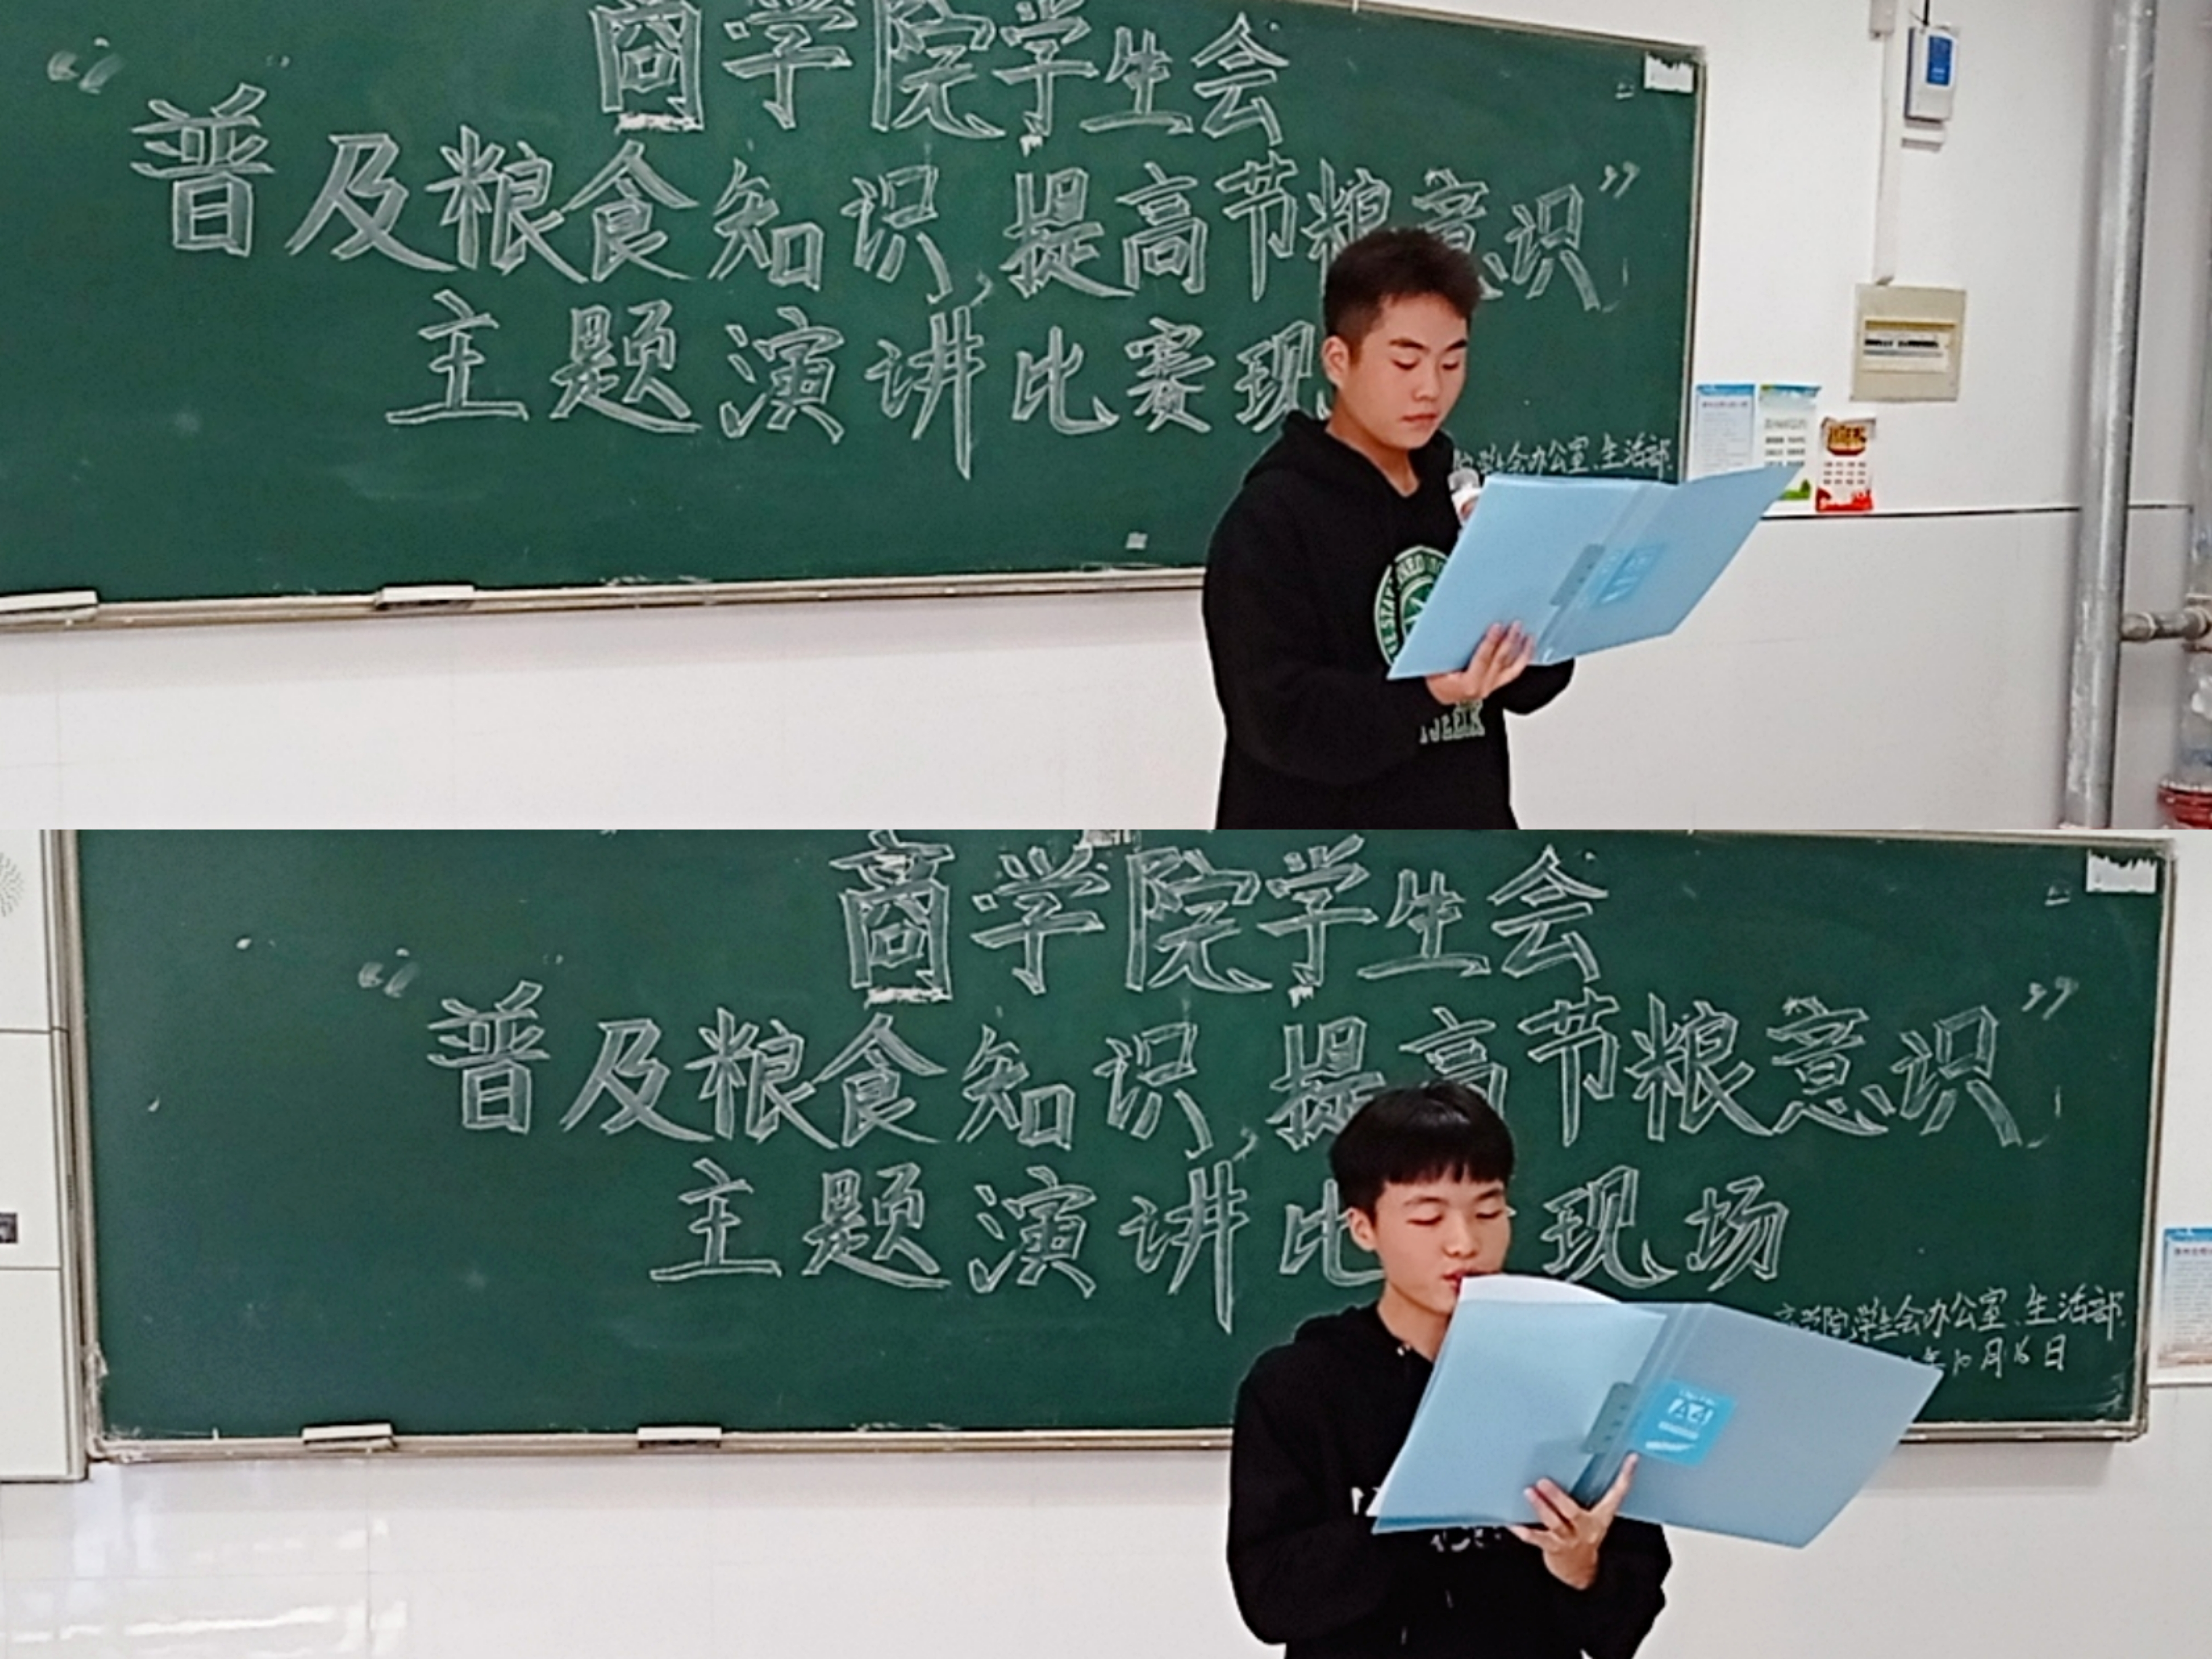 商学院学生会
“普及粮食知识,提高节粮意识”
主题演讲比赛现
学生会办公室、生活部
商学院学生会
“普及粮食知识,提高节粮意识”
主题演讲比 现场
商学院学生会办公室、生活部
年10月16日
A4